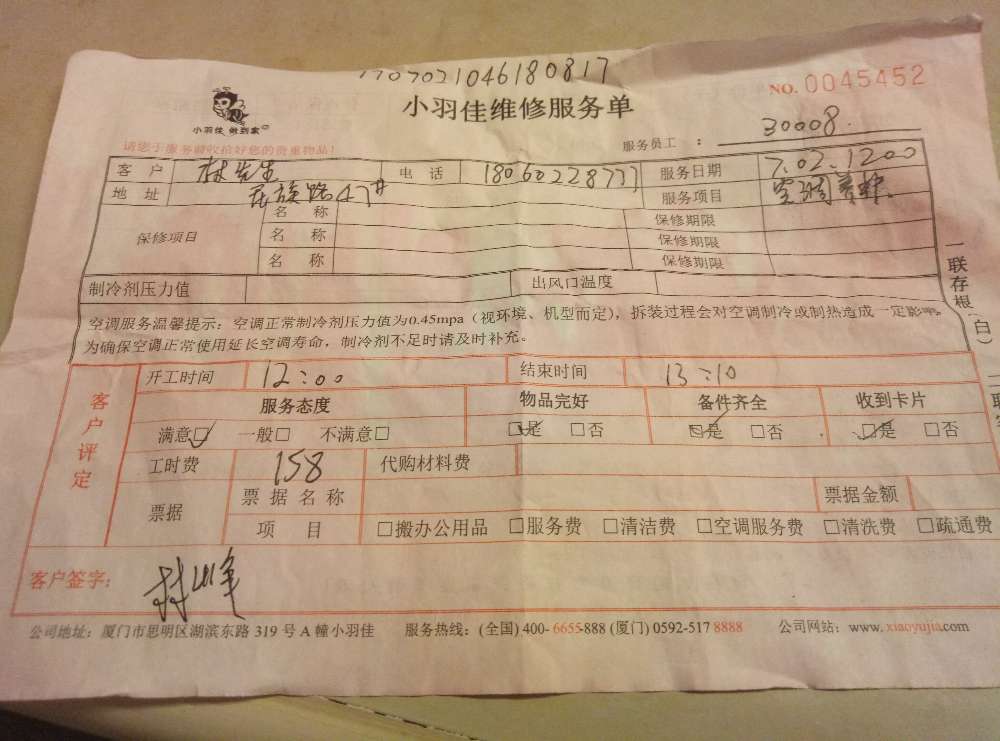 1707021046180817
NO. 0045452
小羽佳 做到家
小羽佳维修服务单
服务员工 : 30008.
请您于服务前收拾好您的贵重物品!
客 户 林先生 电 话 18060228777 服务日期 7.02.1200
地 址 民族路47# 服务项目 空调养护
保修项目 名 称 保修期限
名 称 保修期限
名 称 保修期限
制冷剂压力值 出风口温度
空调服务温馨提示：空调正常制冷剂压力值为0.45mpa（视环境、机型而定），拆装过程会对空调制冷或制热造成一定影响。
为确保空调正常使用延长空调寿命，制冷剂不足时请及时补充。
一联存根（白）
客户评定
开工时间 12:00 结束时间 13:10
服务态度 物品完好 备件齐全 收到卡片
满意□ 一般□ 不满意□ □是 □否 □是 □否 □是 □否
工时费 158 代购材料费
票据 票 据 名 称 票据金额
项 目 □搬办公用品 □服务费 □清洁费 □空调服务费 □清洗费 □疏通费
客户签字：
公司地址：厦门市思明区湖滨东路 319 号 A 幢小羽佳 服务热线：(全国) 400- 6655-888 (厦门) 0592-517 8888 公司网站：www. xiaoyujia.com